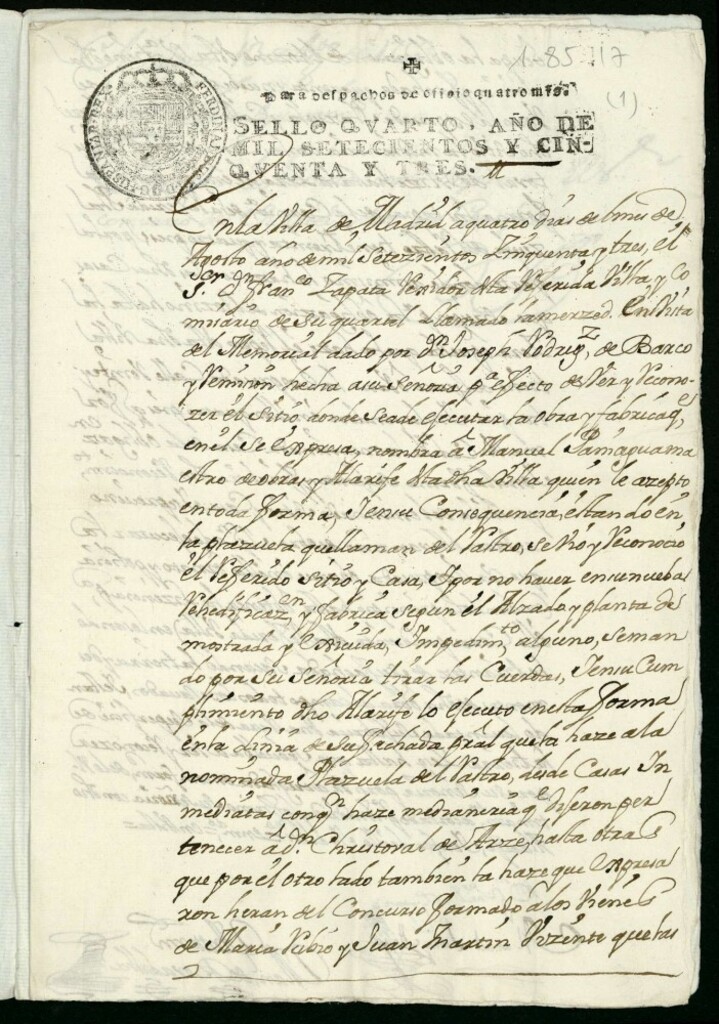 1-85-117
(1)
✠
Para despachos de officio quatro mrs.
SELLO QVARTO, AÑO DE
MIL SETECIENTOS Y CIN-
QVENTA Y TRES.
FERDINANDUS
En la Villa de Madrid a quatro dias de el mes de
Agosto año de mil Setezientos Zinquenta y tres, el
Sr. Dn. Franco Zapata Rexidor dela Referida Villa y Co
misario de su quartel llamado la merzed. En Vista
del Memorial dado por Dn. Joseph Rodrigz. de Barco
y Remision hecha a su Señoria pa. efecto de Ver y Recono
zer el Sitio donde se ade ejecutar la obra y fabrica qe.
en el se Expresa, nombra â Manuel Pamagua ma
estro de obras y Alarife dela dha Villa quien le azepto
en toda forma, Y en su Consequencia, estando en
la plazuela que llaman del Rastro, se Vio y Reconocio
el Refferido Sitio y Casa, Y por no haver en su nueba
Rehedificazn., y fabrica segun el Alzado y planta de
mostrada y Exivida, Impedimto. alguno, se man
do por su Señoria tirar las Cuerdas, Y en su Cum
plimiento dho Alarife lo ejecuto en esta forma
en la linia de su fachada pral que la haze a la
nominada Plazuela del Rastro, desde Casas In
mediatas con qn. haze medianeria qe. dijeron per
tenecer â Dn. Christoval de Arze, hasta otras
que por el otro lado tambien la haze que Expresa
ron heran del Concurso formado a los Vienes
de Maria Rubio y Juan Martin Vizente que las